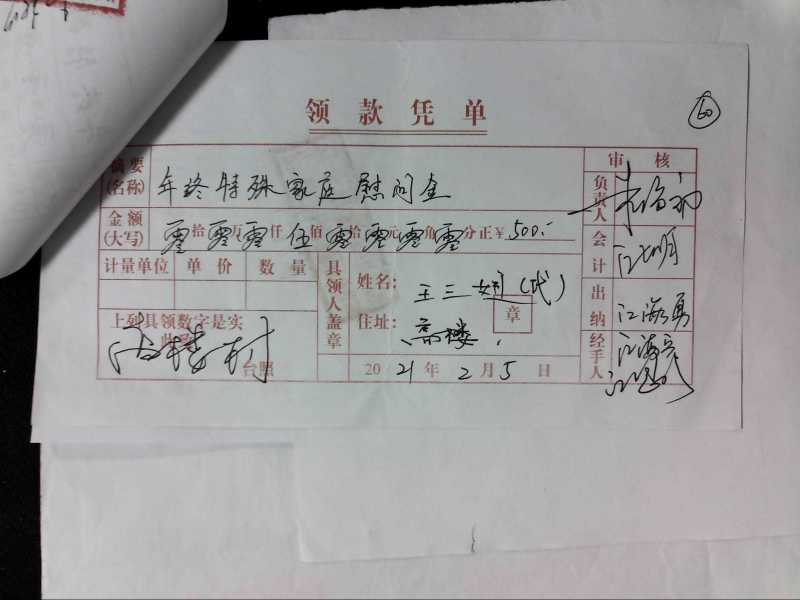 领款凭单
60
摘要(名称) 年终特殊家庭慰问金
金额(大写) 零拾零万零仟伍佰零拾零元零角零分正￥500.-
计量单位 单价 数量
上列具领数字是实
此致
高楼村 台照
具领人盖章
姓名: 王三 (代)
章
住址: 高楼
2021年2月5日
审核
负责人
会计
出纳 江海勇
经手人